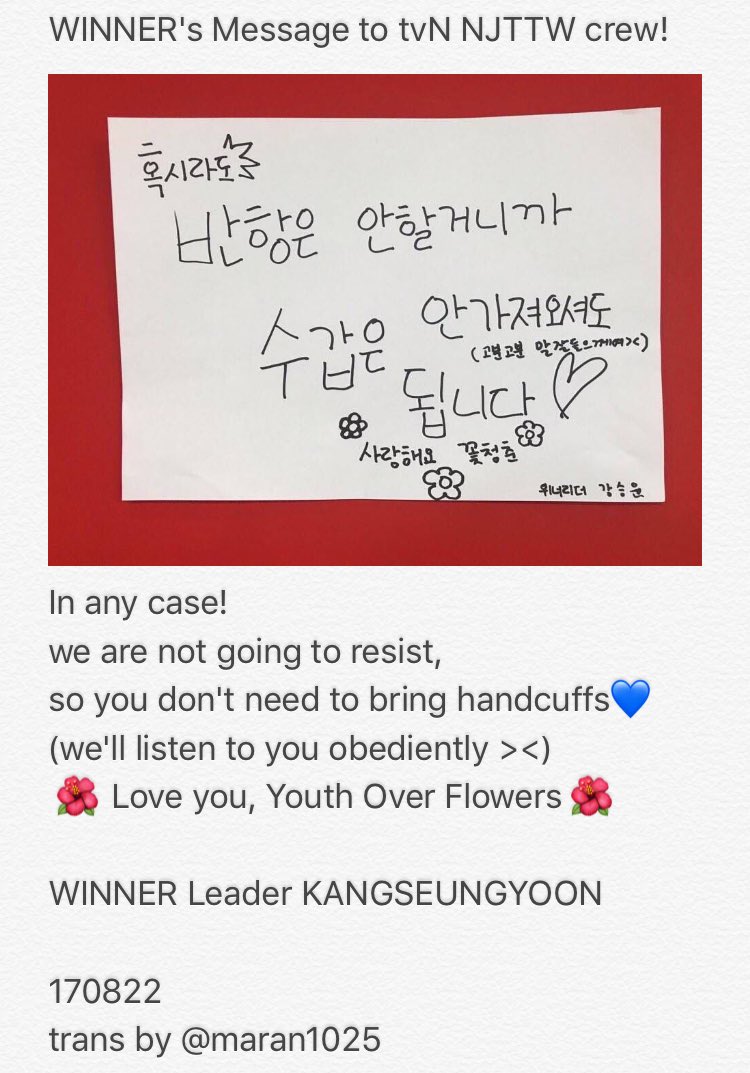 WINNER's Message to tvN NJTTW crew!
혹시라도
반항은 안할거니까
수갑은 안가져오셔도
(고분고분 말잘들으께여><)
됩니다♡
사랑해요 꽃청춘
위너리더 강승윤
In any case!
we are not going to resist,
so you don't need to bring handcuffs💙
(we'll listen to you obediently ><)
🌺 Love you, Youth Over Flowers 🌺
WINNER Leader KANGSEUNGYOON
170822
trans by @maran1025